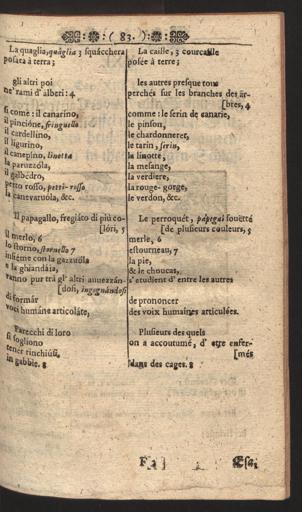 ( 83. )
La quaglia, quaglia 3 squácchera
posáta à terra;
gli altri poi
ne' rami d' alberi: 4
si come: il canarino,
il pincióne, fringuello
il cardellino,
il ligurino,
il canepino, linotta
la paruzzóla,
il galbédro,
petto rosso, petti-rosso
la canevaruóla, &c.
Il papagallo, fregiáto di più co-
[lóri, 5
il merlo, 6
lo storno, stornello 7
insiéme con la gazzuóla
e la ghiandáia,
vanno pur trà gl' altri
[dosi, ingegnándosi
di formár
voci humáne articoláte,
Parecchi di loro
si sogliono
tener rinchiúsi,
in gabbie. 8
La caille, 3 courcaille
posée à terre;
les autres presque tous
perchés sur les branches des ár-
[bres, 4
comme: le serin de canarie,
le pinson,
le chardonneret,
le tarin, serin,
la linotte,
la mesange,
la verdiere,
la rouge-gorge,
le verdon, &c.
Le perroquét, papegai fouëtté
[de plusieurs couleurs, 5
merle, 6
estourneau, 7
la pie,
& le choucas,
s'etudient d'entre les autres
de prononcer
des voix humaines articulées.
Plusieurs des quels
on a accoutumé, d' etre enfer-
[més
dans des cages. 8
F 3